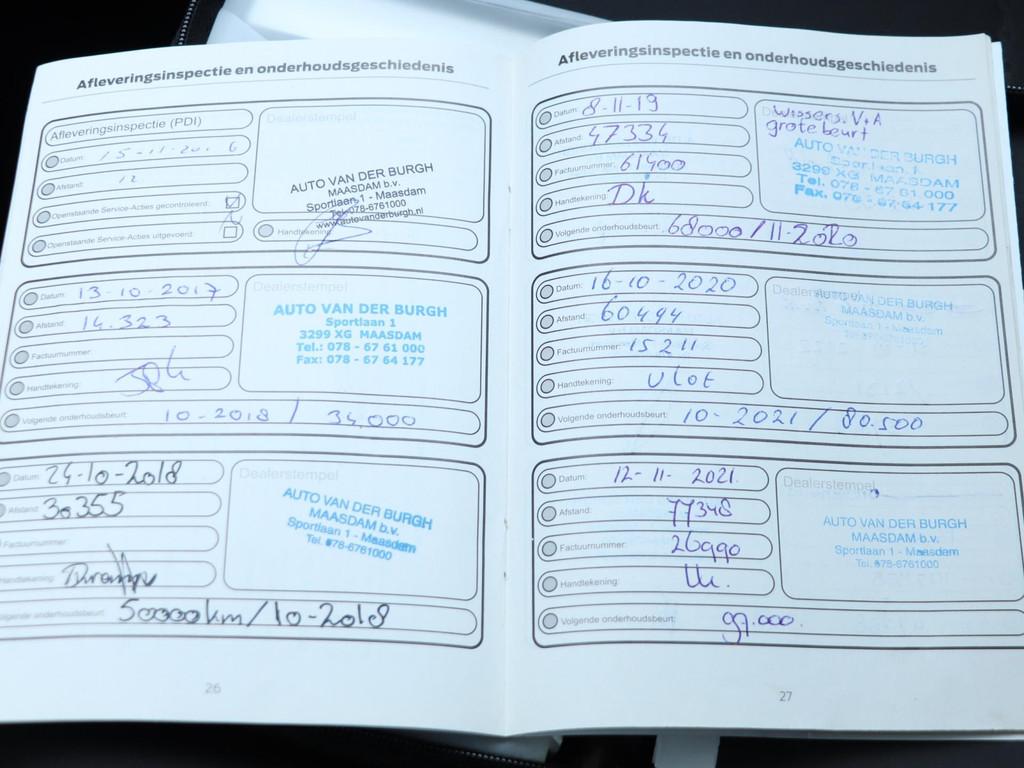 Afleveringsinspectie en onderhoudsgeschiedenis
Afleveringsinspectie (PDI)
Datum: 15-11-20 6
Afstand: 12
Openstaande Service-Acties gecontroleerd:
Openstaande Service-Acties uitgevoerd:
Dealerstempel
AUTO VAN DER BURGH
MAASDAM b.v.
Sportlaan 1 - Maasdam
Tel. 078-6761000
www.autovanderburgh.nl
Handtekening:
Datum: 13-10-2017
Afstand: 14.323
Factuurnummer:
Handtekening:
Volgende onderhoudsbeurt: 10-2018 / 34,000
Dealerstempel
AUTO VAN DER BURGH
Sportlaan 1
3299 XG MAASDAM
Tel.: 078 - 67 61 000
Fax: 078 - 67 64 177
Datum: 24-10-2018
Afstand: 30355
Factuurnummer:
Handtekening:
Volgende onderhoudsbeurt: 50000km/10-2018
Dealerstempel
AUTO VAN DER BURGH
MAASDAM b.v.
Sportlaan 1 - Maasdam
Tel. 078-6761000
26
Afleveringsinspectie en onderhoudsgeschiedenis
Datum: 8-11-19
Afstand: 47334
Factuurnummer: 61400
Handtekening: Dk
Volgende onderhoudsbeurt: 68000/11-2020
Wissers. V+A
grote beurt
AUTO VAN DER BURGH
Sportlaan 1
3299 XG MAASDAM
Tel. 078 - 67 61 000
Fax. 078 - 67 64 177
Datum: 16-10-2020
Afstand: 60494
Factuurnummer: 15211
Handtekening: Vlot
Volgende onderhoudsbeurt: 10-2021 / 80.500
Dealerstempel
AUTO VAN DER BURGH
MAASDAM b.v.
Sportlaan 1 - Maasdam
Datum: 12-11-2021.
Afstand: 77348
Factuurnummer: 26990
Handtekening:
Volgende onderhoudsbeurt: 97.000.
Dealerstempel
AUTO VAN DER BURGH
MAASDAM b.v.
Sportlaan 1 - Maasdam
Tel. 078-6761000
27